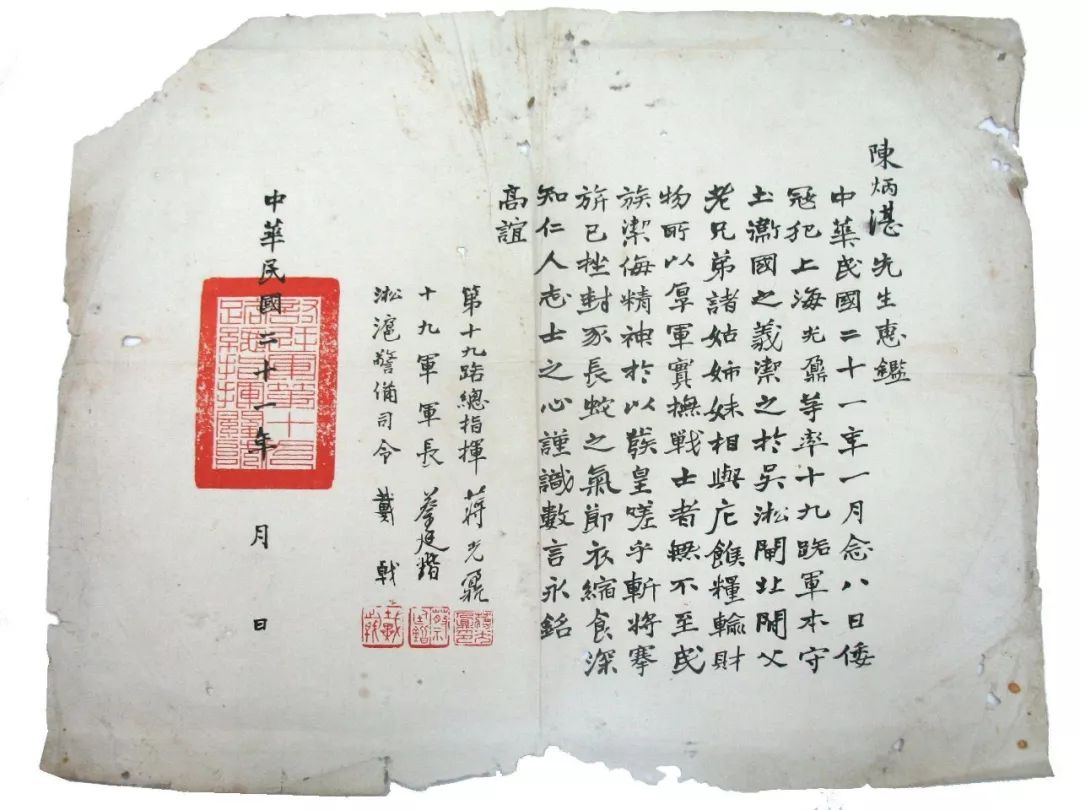 陳炳湛先生惠鑑
中華民國二十一年一月念八日倭
寇犯上海光鼐等率十九路軍本守
土衞國之義禦之於吳淞閘北間父
老兄弟諸姑姊妹相與庀餱糧輸財
物所以厚軍實撫戰士者無不至民
族禦侮精神於以發皇嗟乎斬將搴
旂已挫封豕長蛇之氣節衣縮食深
知仁人志士之心謹識數言永銘
高誼
第十九路總指揮 蔣光鼐
十九軍軍長 蔡廷鍇
淞滬警備司令 戴戟
中華民國二十一年 月 日